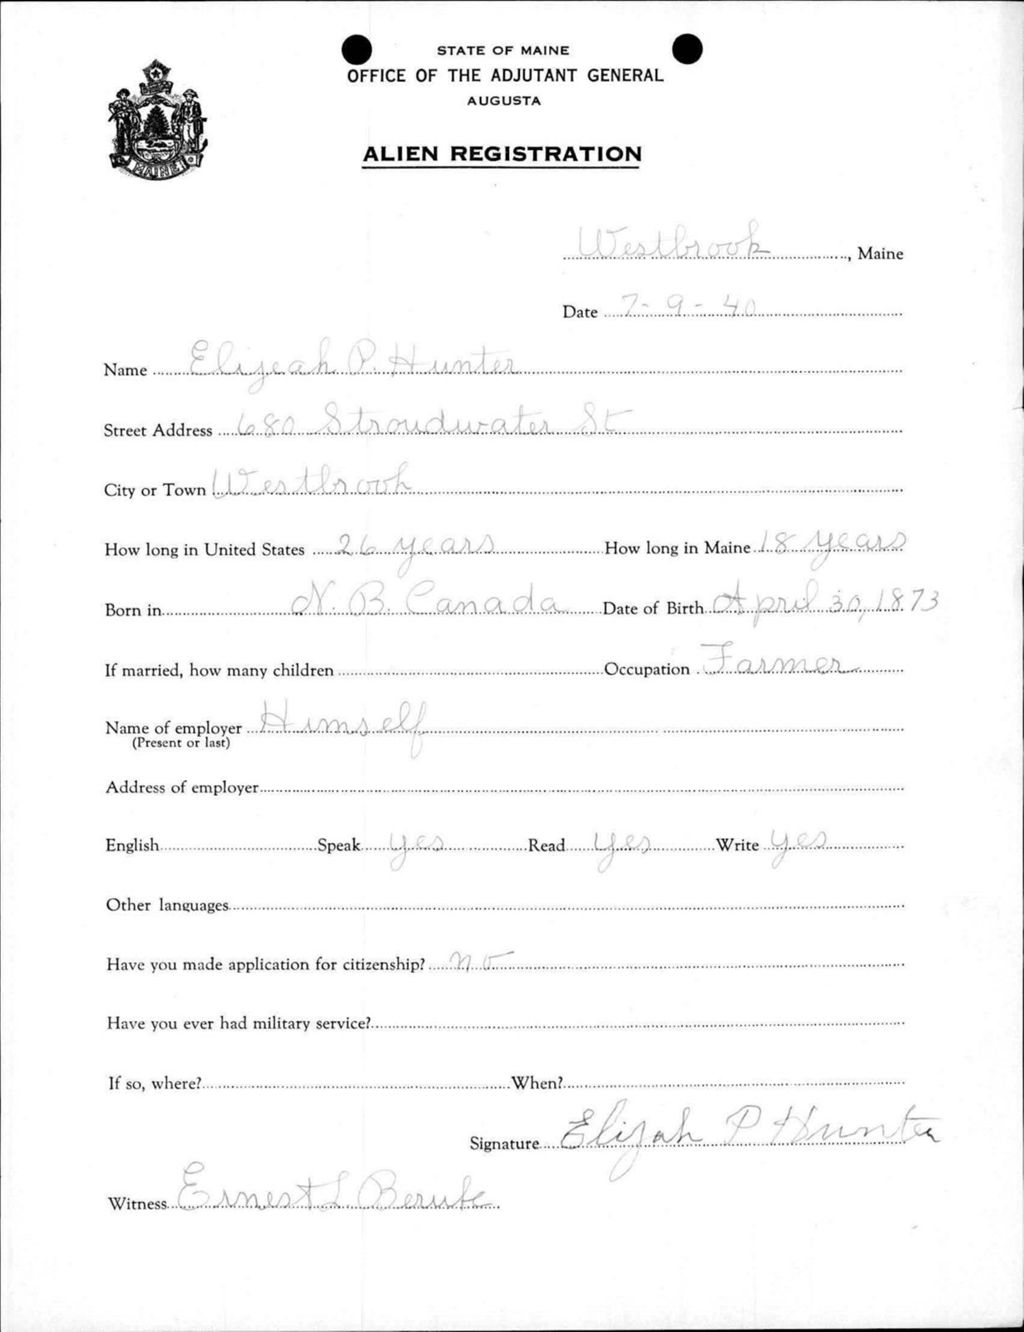 STATE OF MAINE
OFFICE OF THE ADJUTANT GENERAL
AUGUSTA
MAINE
ALIEN REGISTRATION
Westbrook, Maine
Date 7-9-40
Name Elijeah P. Hunter
Street Address 680 Stroudwater St
City or Town Westbrook
How long in United States 26 years How long in Maine 18 years
Born in N. B. Canada Date of Birth April 30, 1873
If married, how many children Occupation Farmer
Name of employer Himself
(Present or last)
Address of employer
English Speak yes Read yes Write yes
Other languages
Have you made application for citizenship? no
Have you ever had military service?
If so, where? When?
Signature Elijah P Hunter
Witness Ernest L. Berube